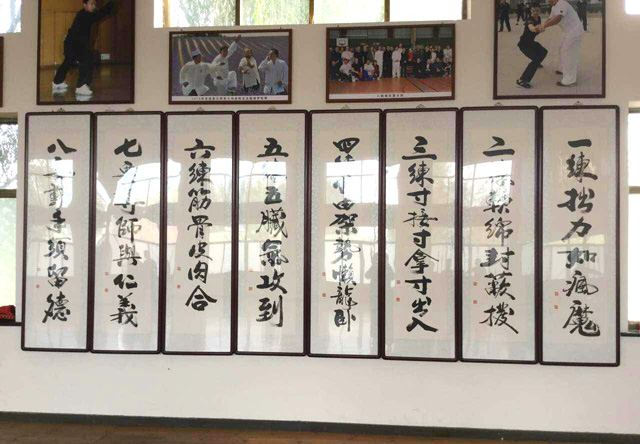 一練拙力如瘋魔
二練軟綿封簸撥
三練寸接寸拿寸出入
四練自由架勢懶龍臥
五練五臟氣攻到
六練筋骨皮肉合
七師與仁義
八手留德